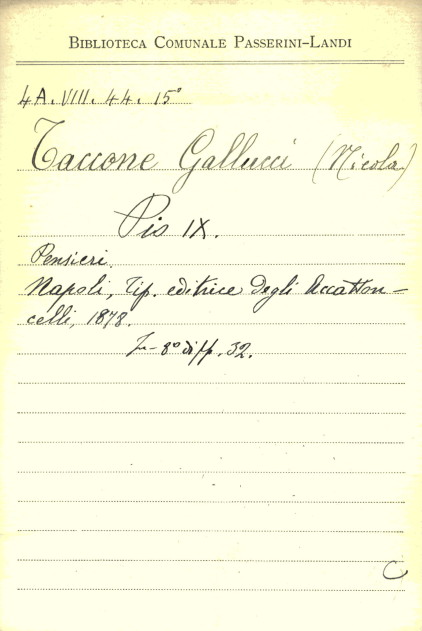 BIBLIOTECA COMUNALE PASSERINI-LANDI
4A. VIII. 44. 15°
Taccone Gallucci (Nicola)
Pio IX.
Pensieri.
Napoli, Tip. editrice degli Accatton-
celli, 1878.
In-8° di pp. 32.
C